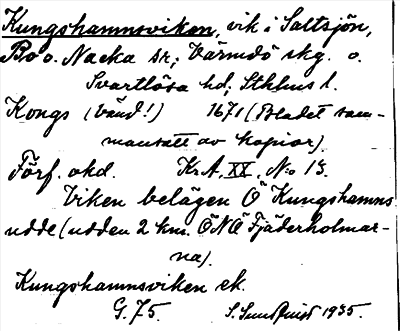 Kungshamnsviken, vik i Saltsjön,
Bo o. Nacka sn; Värmdö skg. o.
Svartlösa hd, Sthlms l.
Kongs (vänd!) 1671 (Bladet sam-
mansatt av kopior).
Förf. okd. Kr.A. XX, No 13.
Viken belägen Ö Kungshamns
udde (udden 2 km. ÖNÖ Fjäderholmar-
na).
Kungshamnsviken ek.
G. 75. S. Sundquist 1935.